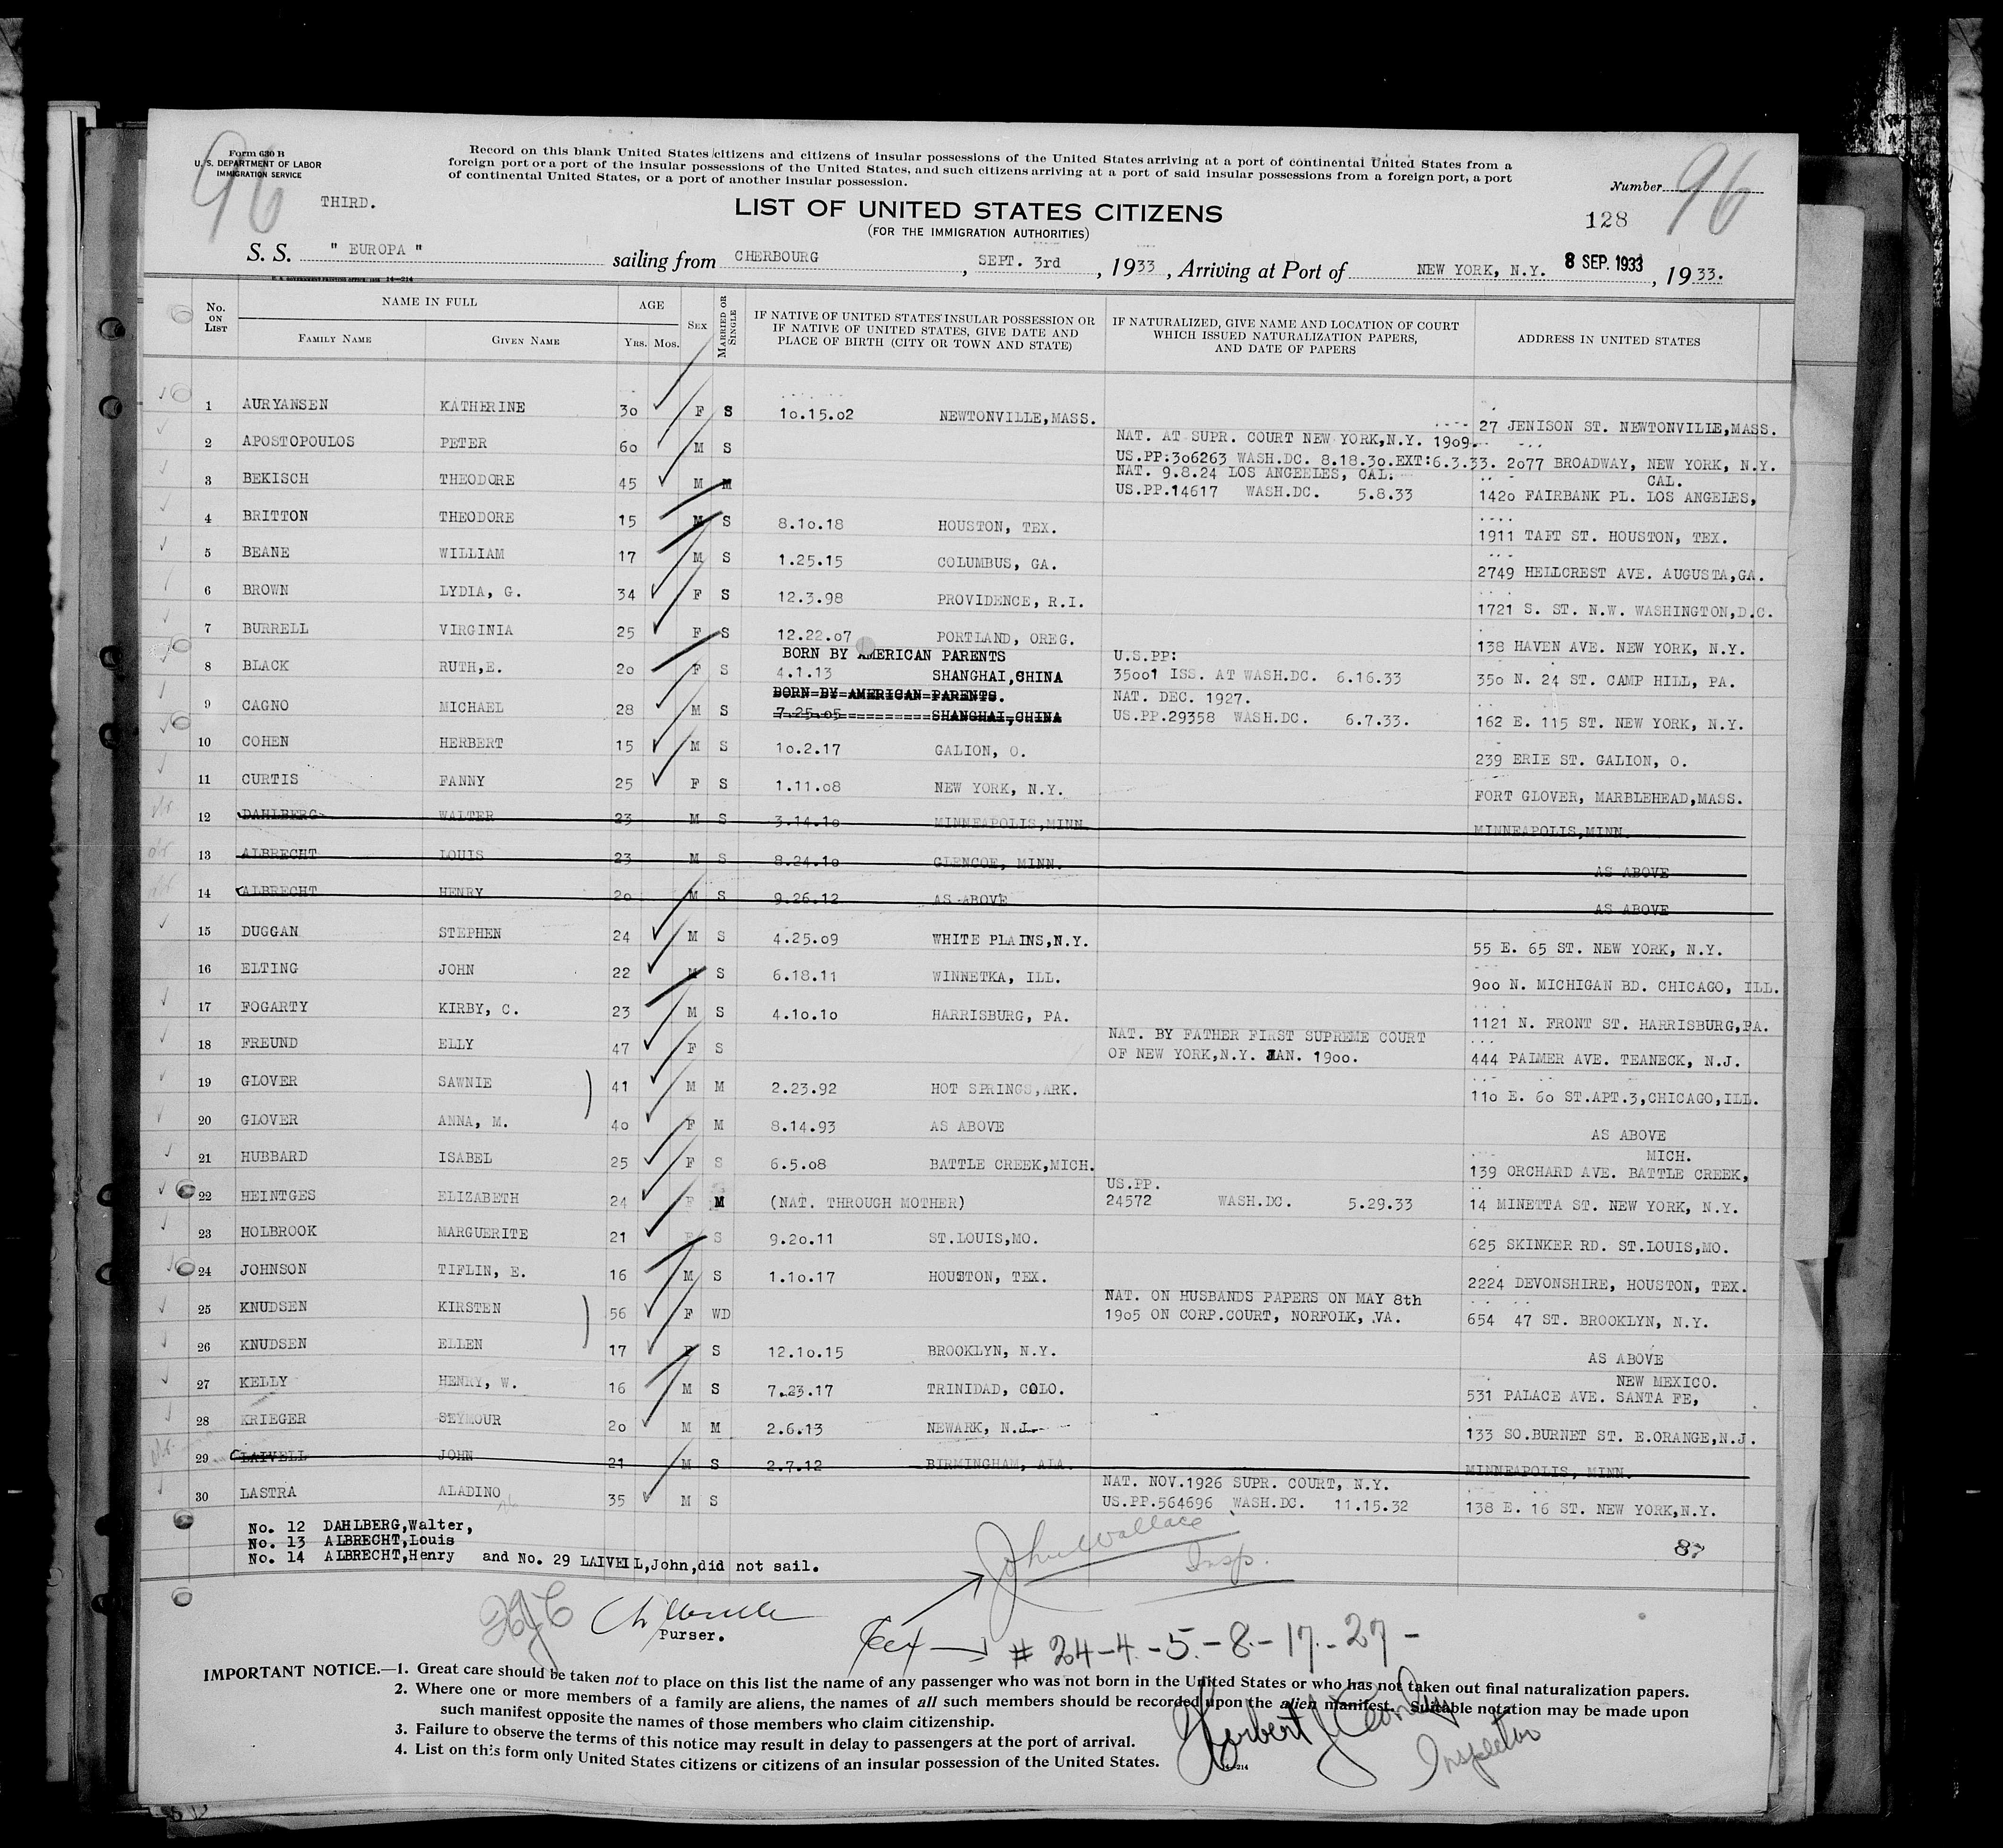 96
Form 630 B
U. S. DEPARTMENT OF LABOR
IMMIGRATION SERVICE
Record on this blank United States citizens and citizens of insular possessions of the United States arriving at a port of continental United States from a
foreign port or a port of the insular possessions of the United States, and such citizens arriving at a port of said insular possessions from a foreign port, a port
of continental United States, or a port of another insular possession.
Number 96
THIRD.
LIST OF UNITED STATES CITIZENS
128
(FOR THE IMMIGRATION AUTHORITIES)
S. S. " EUROPA " sailing from CHERBOURG, SEPT. 3rd, 1933, Arriving at Port of NEW YORK, N.Y. 8 SEP. 1933, 1933.
U. S. GOVERNMENT PRINTING OFFICE 14—214
No. ON LIST NAME IN FULL AGE SEX MARRIED OR SINGLE IF NATIVE OF UNITED STATES INSULAR POSSESSION OR IF NATIVE OF UNITED STATES, GIVE DATE AND PLACE OF BIRTH (CITY OR TOWN AND STATE) IF NATURALIZED, GIVE NAME AND LOCATION OF COURT WHICH ISSUED NATURALIZATION PAPERS, AND DATE OF PAPERS ADDRESS IN UNITED STATES
FAMILY NAME GIVEN NAME YRS. MOS.
1 AURYANSEN KATHERINE 30 F S 10.15.02 NEWTONVILLE,MASS. 27 JENISON ST. NEWTONVILLE,MASS.
2 APOSTOPOULOS PETER 60 M S NAT. AT SUPR. COURT NEW YORK,N.Y. 1909.
US.PP:306263 WASH.DC. 8.18.30.EXT:6.3.33. 2077 BROADWAY, NEW YORK, N.Y.
3 BEKISCH THEODORE 45 M M NAT. 9.8.24 LOS ANGEELES, CAL. CAL.
US.PP.14617 WASH.DC. 5.8.33 1420 FAIRBANK PL. LOS ANGELES,
4 BRITTON THEODORE 15 M S 8.10.18 HOUSTON, TEX. 1911 TAFT ST. HOUSTON, TEX.
5 BEANE WILLIAM 17 M S 1.25.15 COLUMBUS, GA. 2749 HELLCREST AVE. AUGUSTA,GA.
6 BROWN LYDIA, G. 34 F S 12.3.98 PROVIDENCE, R.I. 1721 S. ST. N.W. WASHINGTON,D.C.
7 BURRELL VIRGINIA 25 F S 12.22.07 PORTLAND, OREG. 138 HAVEN AVE. NEW YORK, N.Y.
BORN BY AMERICAN PARENTS U.S.PP:
8 BLACK RUTH,E. 20 F S 4.1.13 SHANGHAI,CHINA 35001 ISS. AT WASH.DC. 6.16.33 350 N. 24 ST. CAMP HILL, PA.
BORN BY AMERICAN PARENTS. NAT. DEC. 1927.
9 CAGNO MICHAEL 28 M S 7.25.05 SHANGHAI,CHINA US.PP.29358 WASH.DC. 6.7.33. 162 E. 115 ST. NEW YORK, N.Y.
10 COHEN HERBERT 15 M S 10.2.17 GALION, O. 239 ERIE ST. GALION, O.
11 CURTIS FANNY 25 F S 1.11.08 NEW YORK, N.Y. FORT GLOVER, MARBLEHEAD,MASS.
12 DAHLBERG WALTER 23 M S 3.14.10 MINNEAPOLIS,MINN. MINNEAPOLIS,MINN.
13 ALBRECHT LOUIS 23 M S 8.24.10 GLENCOE, MINN. AS ABOVE
14 ALBRECHT HENRY 20 M S 9.26.12 AS ABOVE AS ABOVE
15 DUGGAN STEPHEN 24 M S 4.25.09 WHITE PLAINS,N.Y. 55 E. 65 ST. NEW YORK, N.Y.
16 ELTING JOHN 22 M S 6.18.11 WINNETKA, ILL. 900 N. MICHIGAN BD. CHICAGO, ILL.
17 FOGARTY KIRBY, C. 23 M S 4.10.10 HARRISBURG, PA. 1121 N. FRONT ST. HARRISBURG,PA.
18 FREUND ELLY 47 F S NAT. BY FATHER FIRST SUPREME COURT
OF NEW YORK,N.Y. JAN. 1900. 444 PALMER AVE. TEANECK, N.J.
19 GLOVER SAWNIE 41 M M 2.23.92 HOT SPRINGS,ARK. 110 E. 60 ST.APT.3,CHICAGO,ILL.
20 GLOVER ANNA, M. 40 F M 8.14.93 AS ABOVE AS ABOVE
21 HUBBARD ISABEL 25 F S 6.5.08 BATTLE CREEK,MICH. MICH.
139 ORCHARD AVE. BATTLE CREEK,
US.PP.
22 HEINTGES ELIZABETH 24 F M (NAT. THROUGH MOTHER) 24572 WASH.DC. 5.29.33 14 MINETTA ST. NEW YORK, N.Y.
23 HOLBROOK MARGUERITE 21 F S 9.20.11 ST.LOUIS,MO. 625 SKINKER RD. ST.LOUIS,MO.
24 JOHNSON TIFLIN, E. 16 M S 1.10.17 HOUSTON, TEX. 2224 DEVONSHIRE, HOUSTON, TEX.
25 KNUDSEN KIRSTEN 56 F WD NAT. ON HUSBANDS PAPERS ON MAY 8th
1905 ON CORP.COURT, NORFOLK, VA. 654 47 ST. BROOKLYN, N.Y.
26 KNUDSEN ELLEN 17 F S 12.10.15 BROOKLYN, N.Y. AS ABOVE
27 KELLY HENRY, W. 16 M S 7.23.17 TRINIDAD, COLO. NEW MEXICO.
531 PALACE AVE. SANTA FE,
28 KRIEGER SEYMOUR 20 M M 2.6.13 NEWARK, N.J. 133 SO.BURNET ST. E.ORANGE,N.J.
29 LAIVELL JOHN 21 M S 2.7.12 BIRMINGHAM, ALA. MINNEAPOLIS, MINN.
30 LASTRA ALADINO 35 M S NAT. NOV.1926 SUPR. COURT, N.Y.
US.PP.564696 WASH.DC. 11.15.32 138 E. 16 ST. NEW YORK,N.Y.
No. 12 DAHLBERG,Walter,
No. 13 ALBRECHT,Louis
No. 14 ALBRECHT,Henry and No. 29 LAIVELL,John,did not sail.
John Wallace
Insp.
87
Purser.
# 24-4-5-8-17-27-
IMPORTANT NOTICE.—1. Great care should be taken not to place on this list the name of any passenger who was not born in the United States or who has not taken out final naturalization papers.
2. Where one or more members of a family are aliens, the names of all such members should be recorded upon the alien manifest. Suitable notation may be made upon
such manifest opposite the names of those members who claim citizenship.
3. Failure to observe the terms of this notice may result in delay to passengers at the port of arrival.
4. List on this form only United States citizens or citizens of an insular possession of the United States.
14—214
Herbert
Inspector